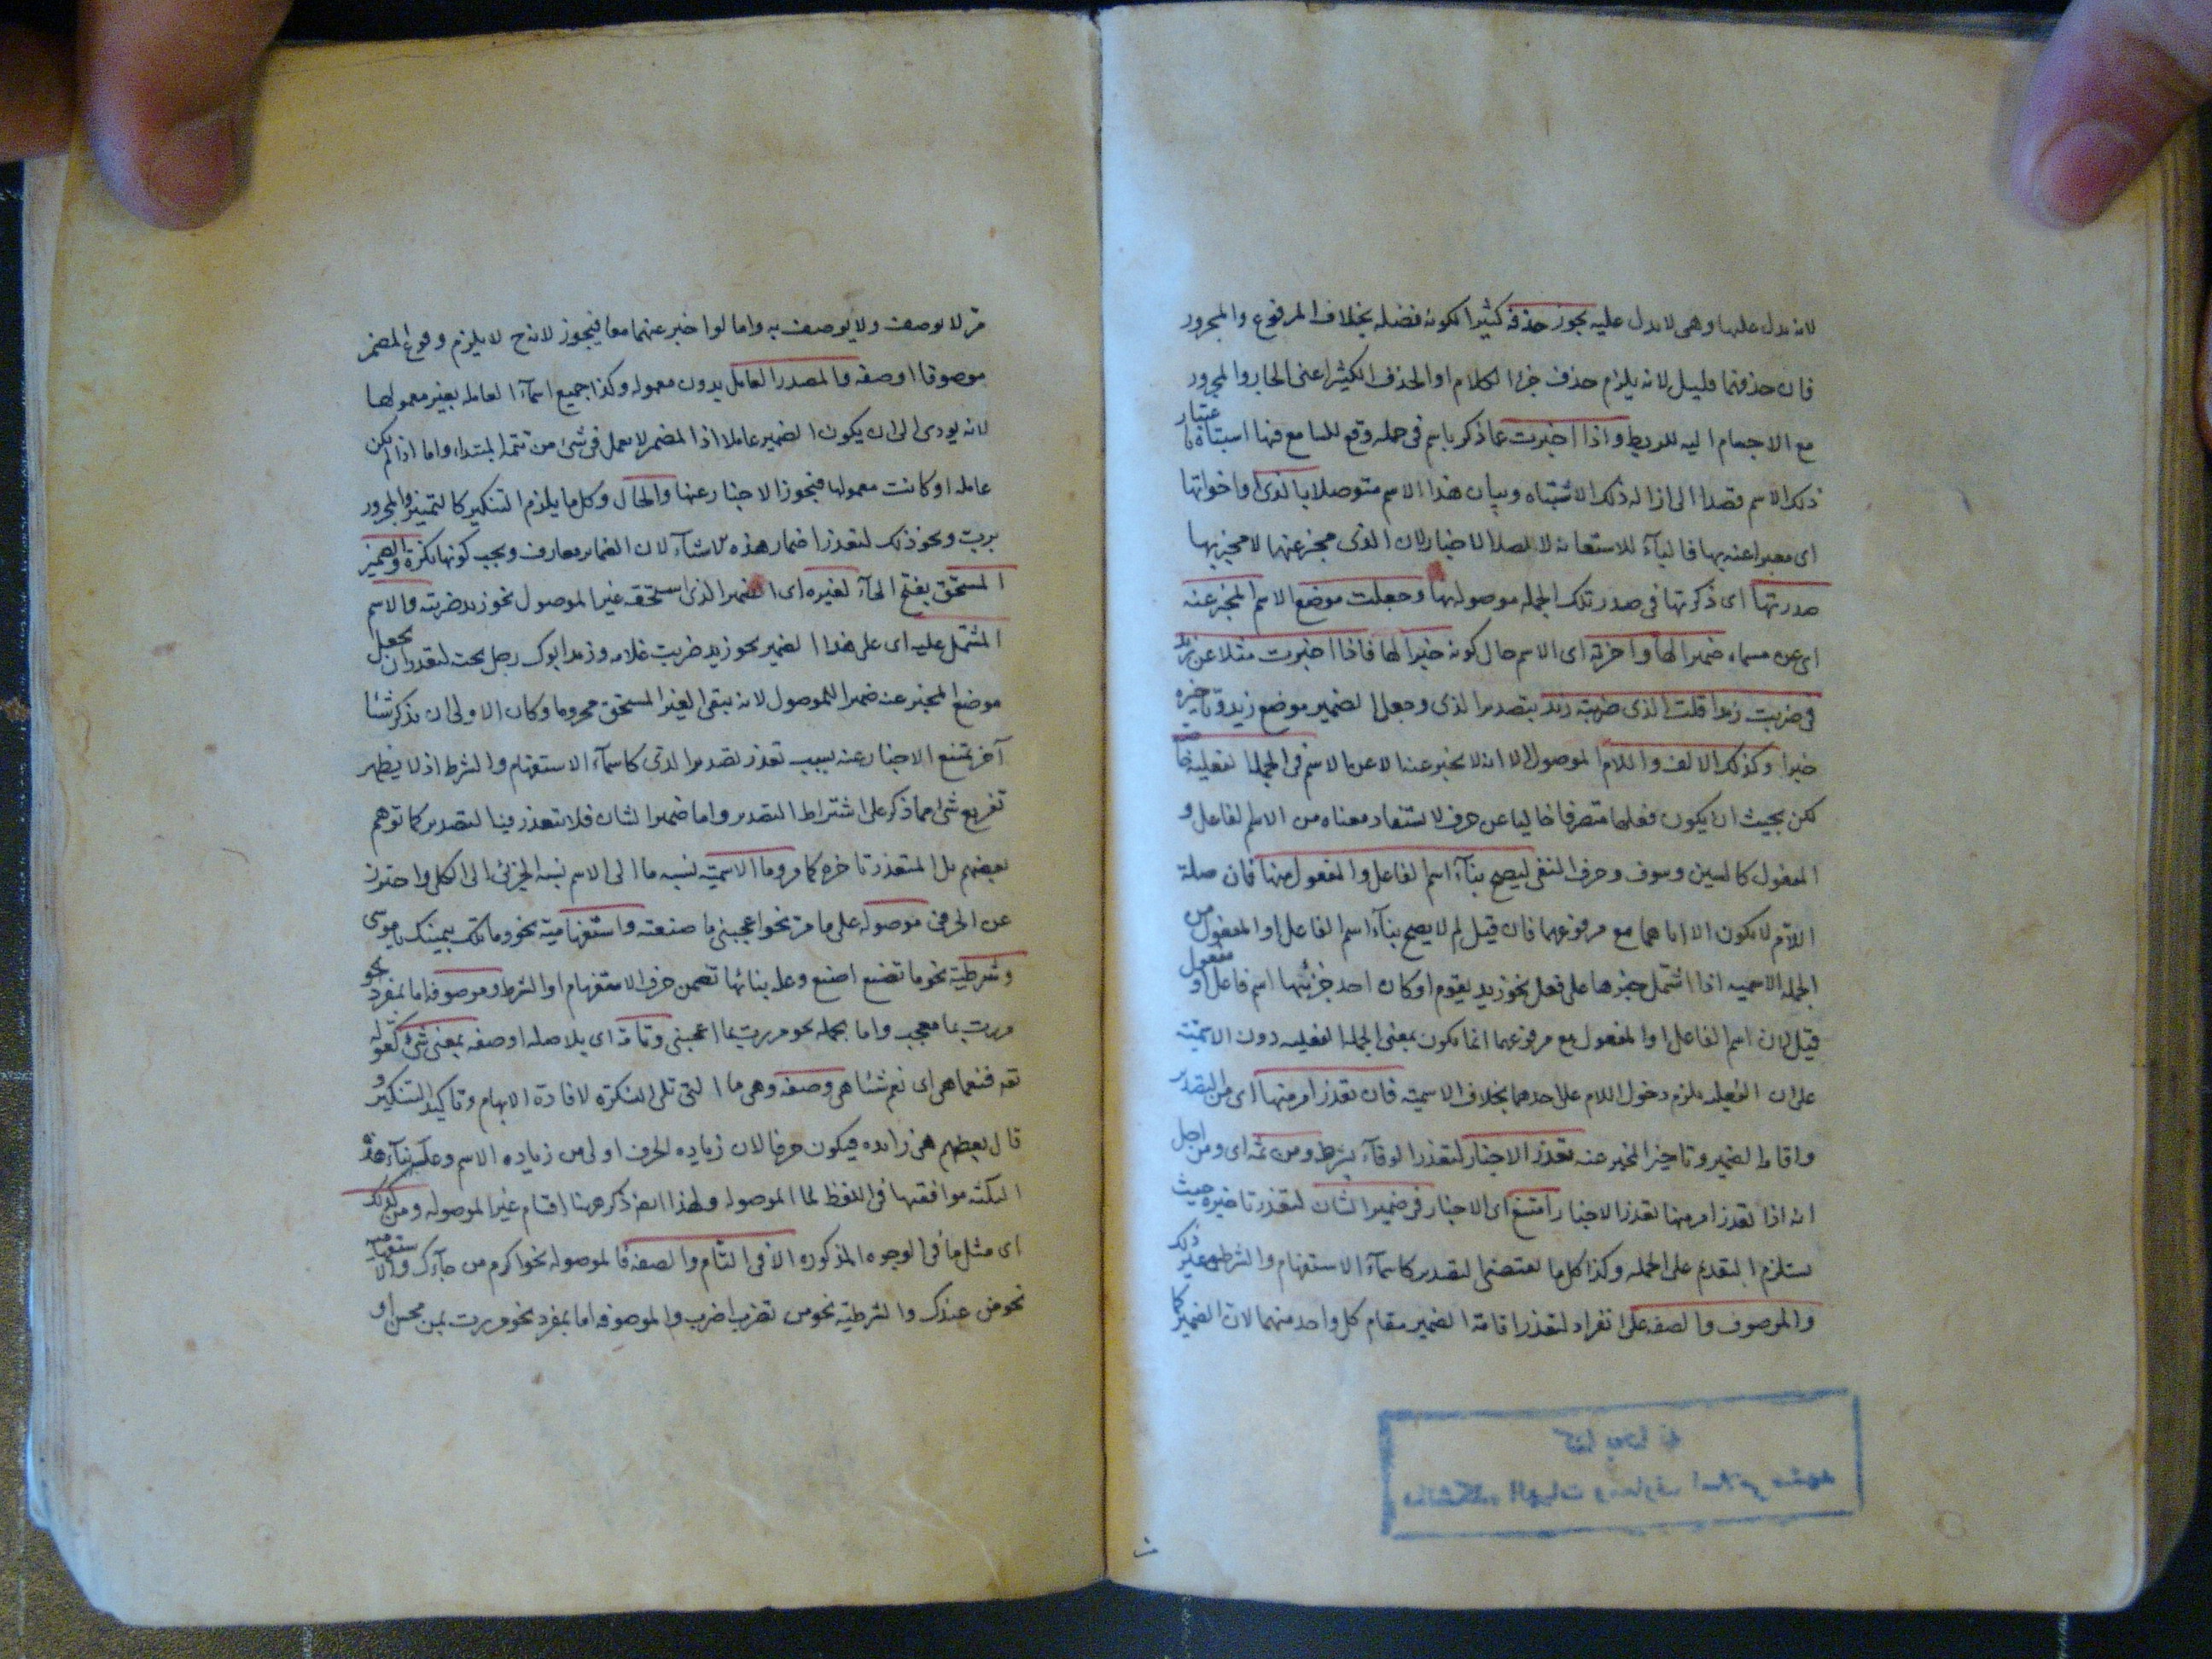 لانه يدل عليها وهى لا يدل عليه يجوز حذفه كثيرا لكونه فضله بخلاف المرفوع والمجرور
فان حذفهما قليل لانه يلزم حذف جزء الكلام او الحذف الكثير اعنى الجار والمجرور
مع الاحتياج اليه للربط واذا اخبرت عما ذكر باسم فى جمله وقع للسامع فيها اشتباه باعتبار
ذلك الاسم قصدا الى ازاله ذلك الاشتباه وبيان هذا الاسم متوصلا بالذى او اخواتها
اى معبرا عنه بها فالباء للاستعانه لا لصله الاخبار لان الذى مخبر عنها لا مخبر بها
صدرتها اى ذكرتها فى صدر تلك الجمله موصوله بها وجعلت موضع الاسم المخبر عنه
اى عن مسماه ضميرا لها واخرته اى الاسم حال كونه خبرا لها فاذا اخبرت مثلا عن زيد
فى ضربت زيدا قلت الذى ضربته زيد بتصدير الذى وجعل الضمير موضع زيد وتاخيره
خبرا وكذلك الالف واللام الموصول الا انه لا يخبر عنه الا عن الاسم فى الجملة الفعلية خاصة
لكن بحيث ان يكون فعلها متصرفا خاليا عن حرف لا يستفاد معناه من الاسم الفاعل و
المفعول كالسين وسوف وحرف النفى ليصح بناء اسم الفاعل والمفعول منها فان صلة
اللام لا يكون الا اياهما مع مرفوعهما فان قيل لم لا يصح بناء اسم الفاعل او المفعول من
الجمله الاسميه اذا اشتمل خبرها على فعل نحو زيد يقوم او كان احد جزئيها اسم فاعل او مفعول
قيل لان اسم الفاعل او المفعول مع مرفوعهما انما يكون بمعنى الجملة الفعليه دون الاسمية
على ان الفعليه يلزم دخول اللام على احدهما بخلاف الاسمية فان تعذر امر منها اى من التصدير
واقامة الضمير وتاخير المخبر عنه تعذر الاخبار لتعذر الوفاء بشرطه ومن ثمه اى ومن اجل
انه اذا تعذر امر منها تعذر الاخبار امتنع اى الاخبار فى ضمير الشان لتعذر تاخيره حيث
يستلزم التقديم على الجمله وكذا كل ما يقتضى التصدير كاسماء الاستفهام والشرط وغير ذلك
والموصوف والصفه على انفراد لتعذر اقامة الضمير مقام كل واحد منهما لان الضمير كما
مر لا يوصف ولا يوصف به واما لو اخبر عنهما معا فيجوز لانه ح لا يلزم وقوع المضمر
موصوفا او صفه والمصدر العامل بدون معموله وكذا جميع اسماء العامله بغير معمولها
لانه يودى الى ان يكون الضمير عاملا اذ المضمر لا يعمل فى شئ من تتمة المبتداء واما اذا لم يكن
عامله او كانت معمولها فيجوز الاخبار عنها والحال وكل ما يلزم التنكير كالتمييز والمجرور
برب ونحو ذلك لتعذر اضمار هذه الاشياء لان الضماير معارف ويجب كونها نكرة والضمير
المستحق بفتح الحاء لغيره اى الضمير الذى استحقه غير الموصول نحو زيد ضربته والاسم
المشتمل عليه اى على هذا الضمير نحو زيد ضربت غلامه وزيد ابوك رجل يحب لتعذر ان يجعل
موضع المخبر عنه ضمير للموصول لانه يبقى الغير المستحق محروما وكان الاولى ان يذكر شئا
آخر يمتنع الاخبار عنه بسبب تعذر تصدير الذى كاسماء الاستفهام والشرط اذ لا يظهر
تفريع شئ مما ذكر على اشتراط التصدير واما ضمير الشان فلا يتعذر فيه التصدير كما توهم
بعضهم بل المتعذر تاخره كما مر وما الاسميّة نسبه ما الى الاسم نسبه الجزئى الى الكلى واحترز
عن الحرفى موصوله على ما مر نحو اعجبنى ما صنعته واستفهامية نحو وما تلك بيمينك يا موسى
وشرطيّة نحو ما تصنع اصنع وعلة بنائها تضمن حرف الاستفهام او الشرط وموصوفة اما بمفرد نحو
مررت بما معجب واما بجمله نحو مررت بما اعجبنى وتامّة اى بلا صله او صفه بمعنى شئ كقوله
تعه فنعما هى اى نعم شئا هى وصفه وهى ما التى تلى النكرة لافادة الابهام وتاكيد التنكير و
قال بعضهم هى زايده فيكون حرفا لان زياده الحرف اولى من زياده الاسم وعلة بناء هذه
الثلثه موافقتها فى اللفظ لما الموصوله ولهذا ايضا ذكر ههنا اقسام غير الموصوله ومن كذلك
اى مثل ما فى الوجوه المذكوره الا فى التام والصفه فالموصوله نحو اكرم من جاءك والاستفهاميه
نحو من عندك والشرطيّة نحو من تضرب اضرب والموصوفه اما بمفرد نحو مررت بمن محسن او